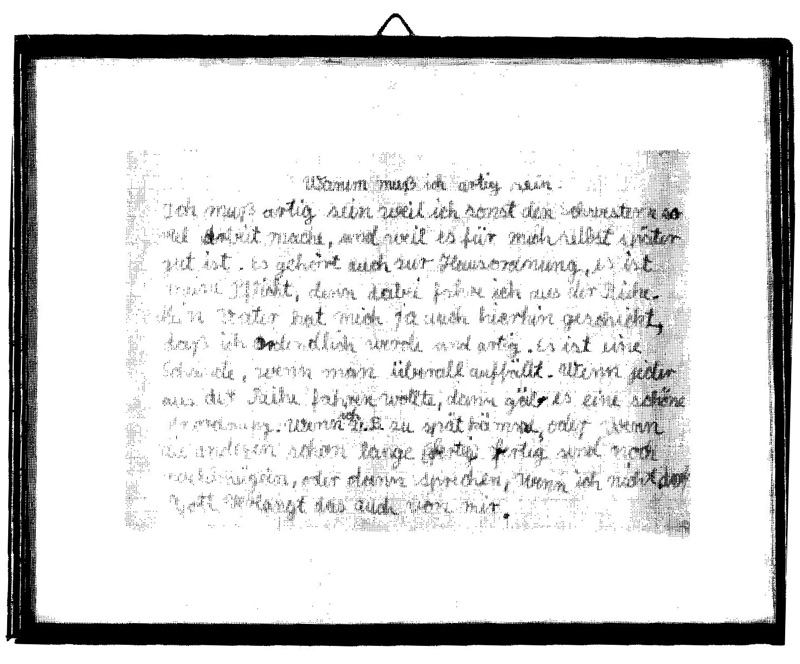 Warum muß ich artig sein.
Ich muß artig sein weil ich sonst den Schwestern so
viel Arbeit mache, und weil es für mich selbst später
gut ist. es gehört auch zur Hausordnung, es ist
meine Pflicht, denn dabei fahre ich aus der Reihe.
Mein Vater hat mich ja auch hierhin geschickt,
daß ich ordendlich werde und artig. Es ist eine
Schande, wenn man überall auffällt. Wenn jeder
aus der Reihe fahren wollte, dann gäb es eine schöne
Unordnung. Wenn ich z.B. zu spät käme, oder wenn
die anderen schon lange fertig sind und noch
oder dann sprechen, wenn ich nicht darf
Gott verlangt das auch von mir.